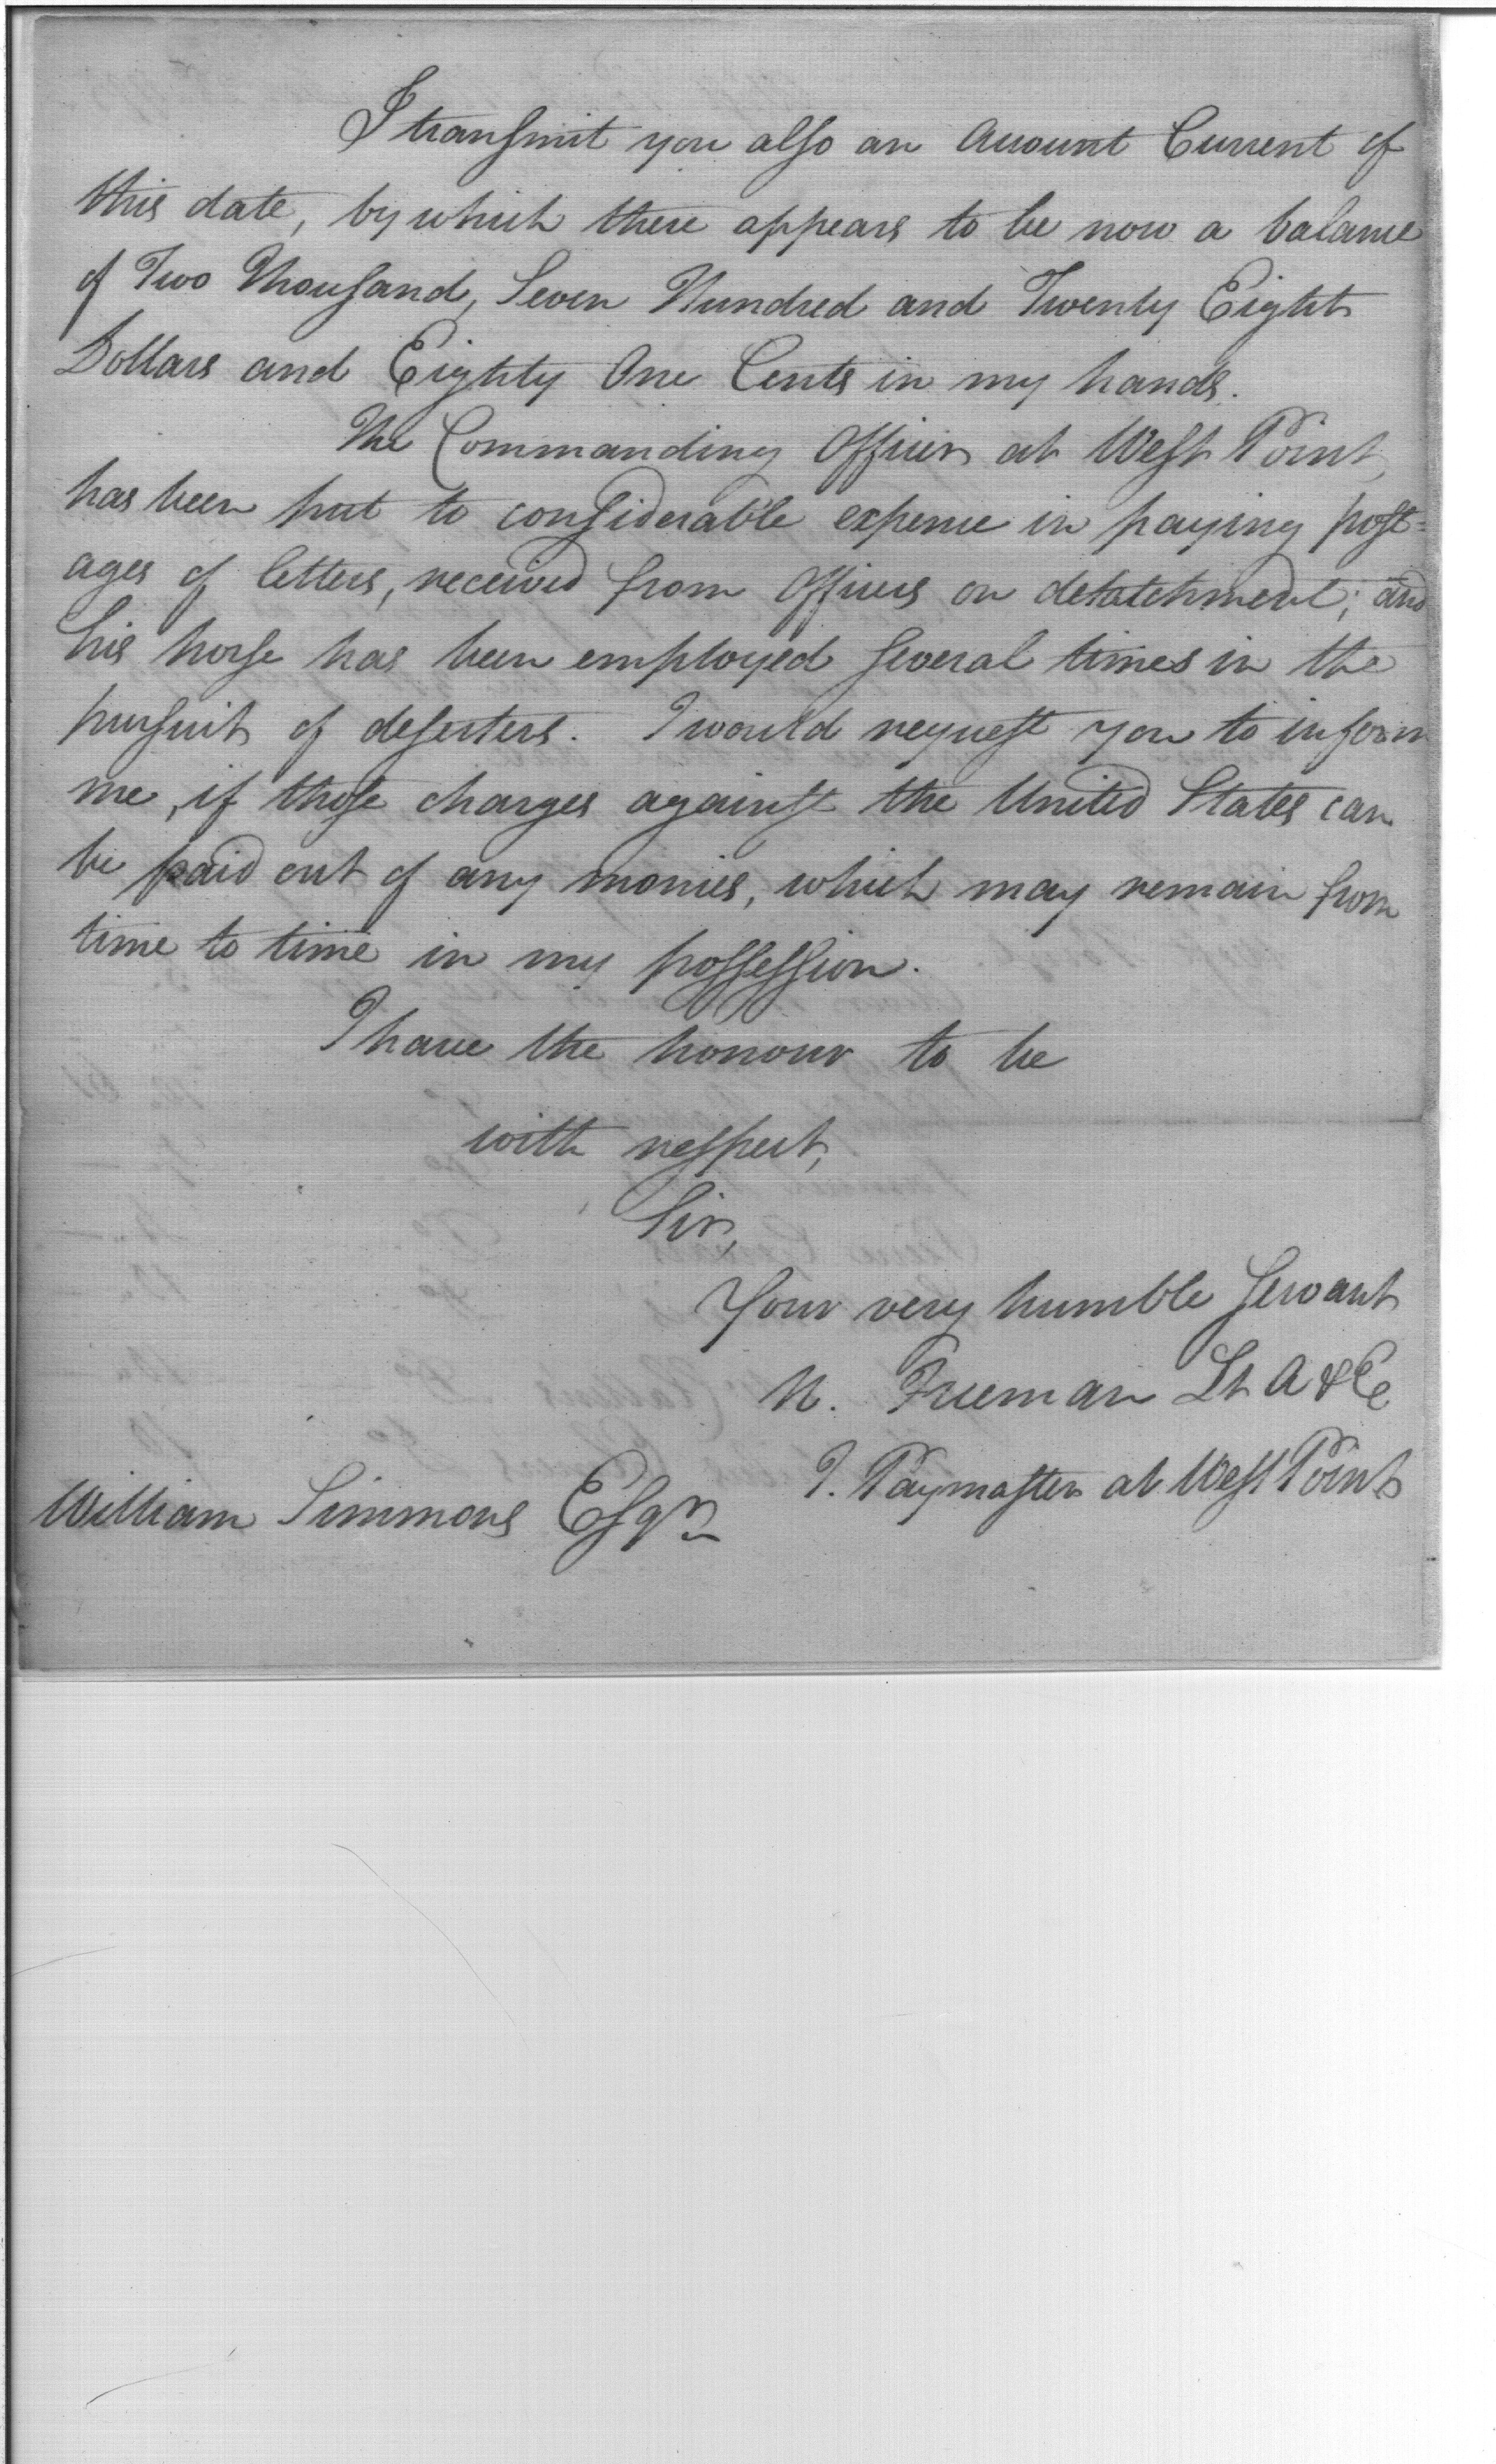 I transmit you also an Account Current of
this date, by which there appears to be now a balance
of Two Thousand, Seven Hundred and Twenty Eight
Dollars and Eighty One Cents in my hands.
The Commanding Officer at West Point,
has been put to considerable expence in paying post=
ages of letters, received from Officers on detatchment; and
his horse has been employed several times in the
pursuit of deserters. I would request you to inform
me, if those charges against the United States can
be paid out of any monies, which may remain from
time to time in my possession.
I have the honour to be
with respect,
Sir,
Your very humble servant
N. Freeman Lt A & E
P. Paymaster at West Point
William Simmons Esqr